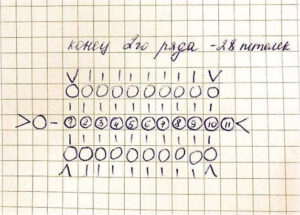 конец 2го ряда - 28 петелек
1 2 3 4 5 6 7 8 9 10 11